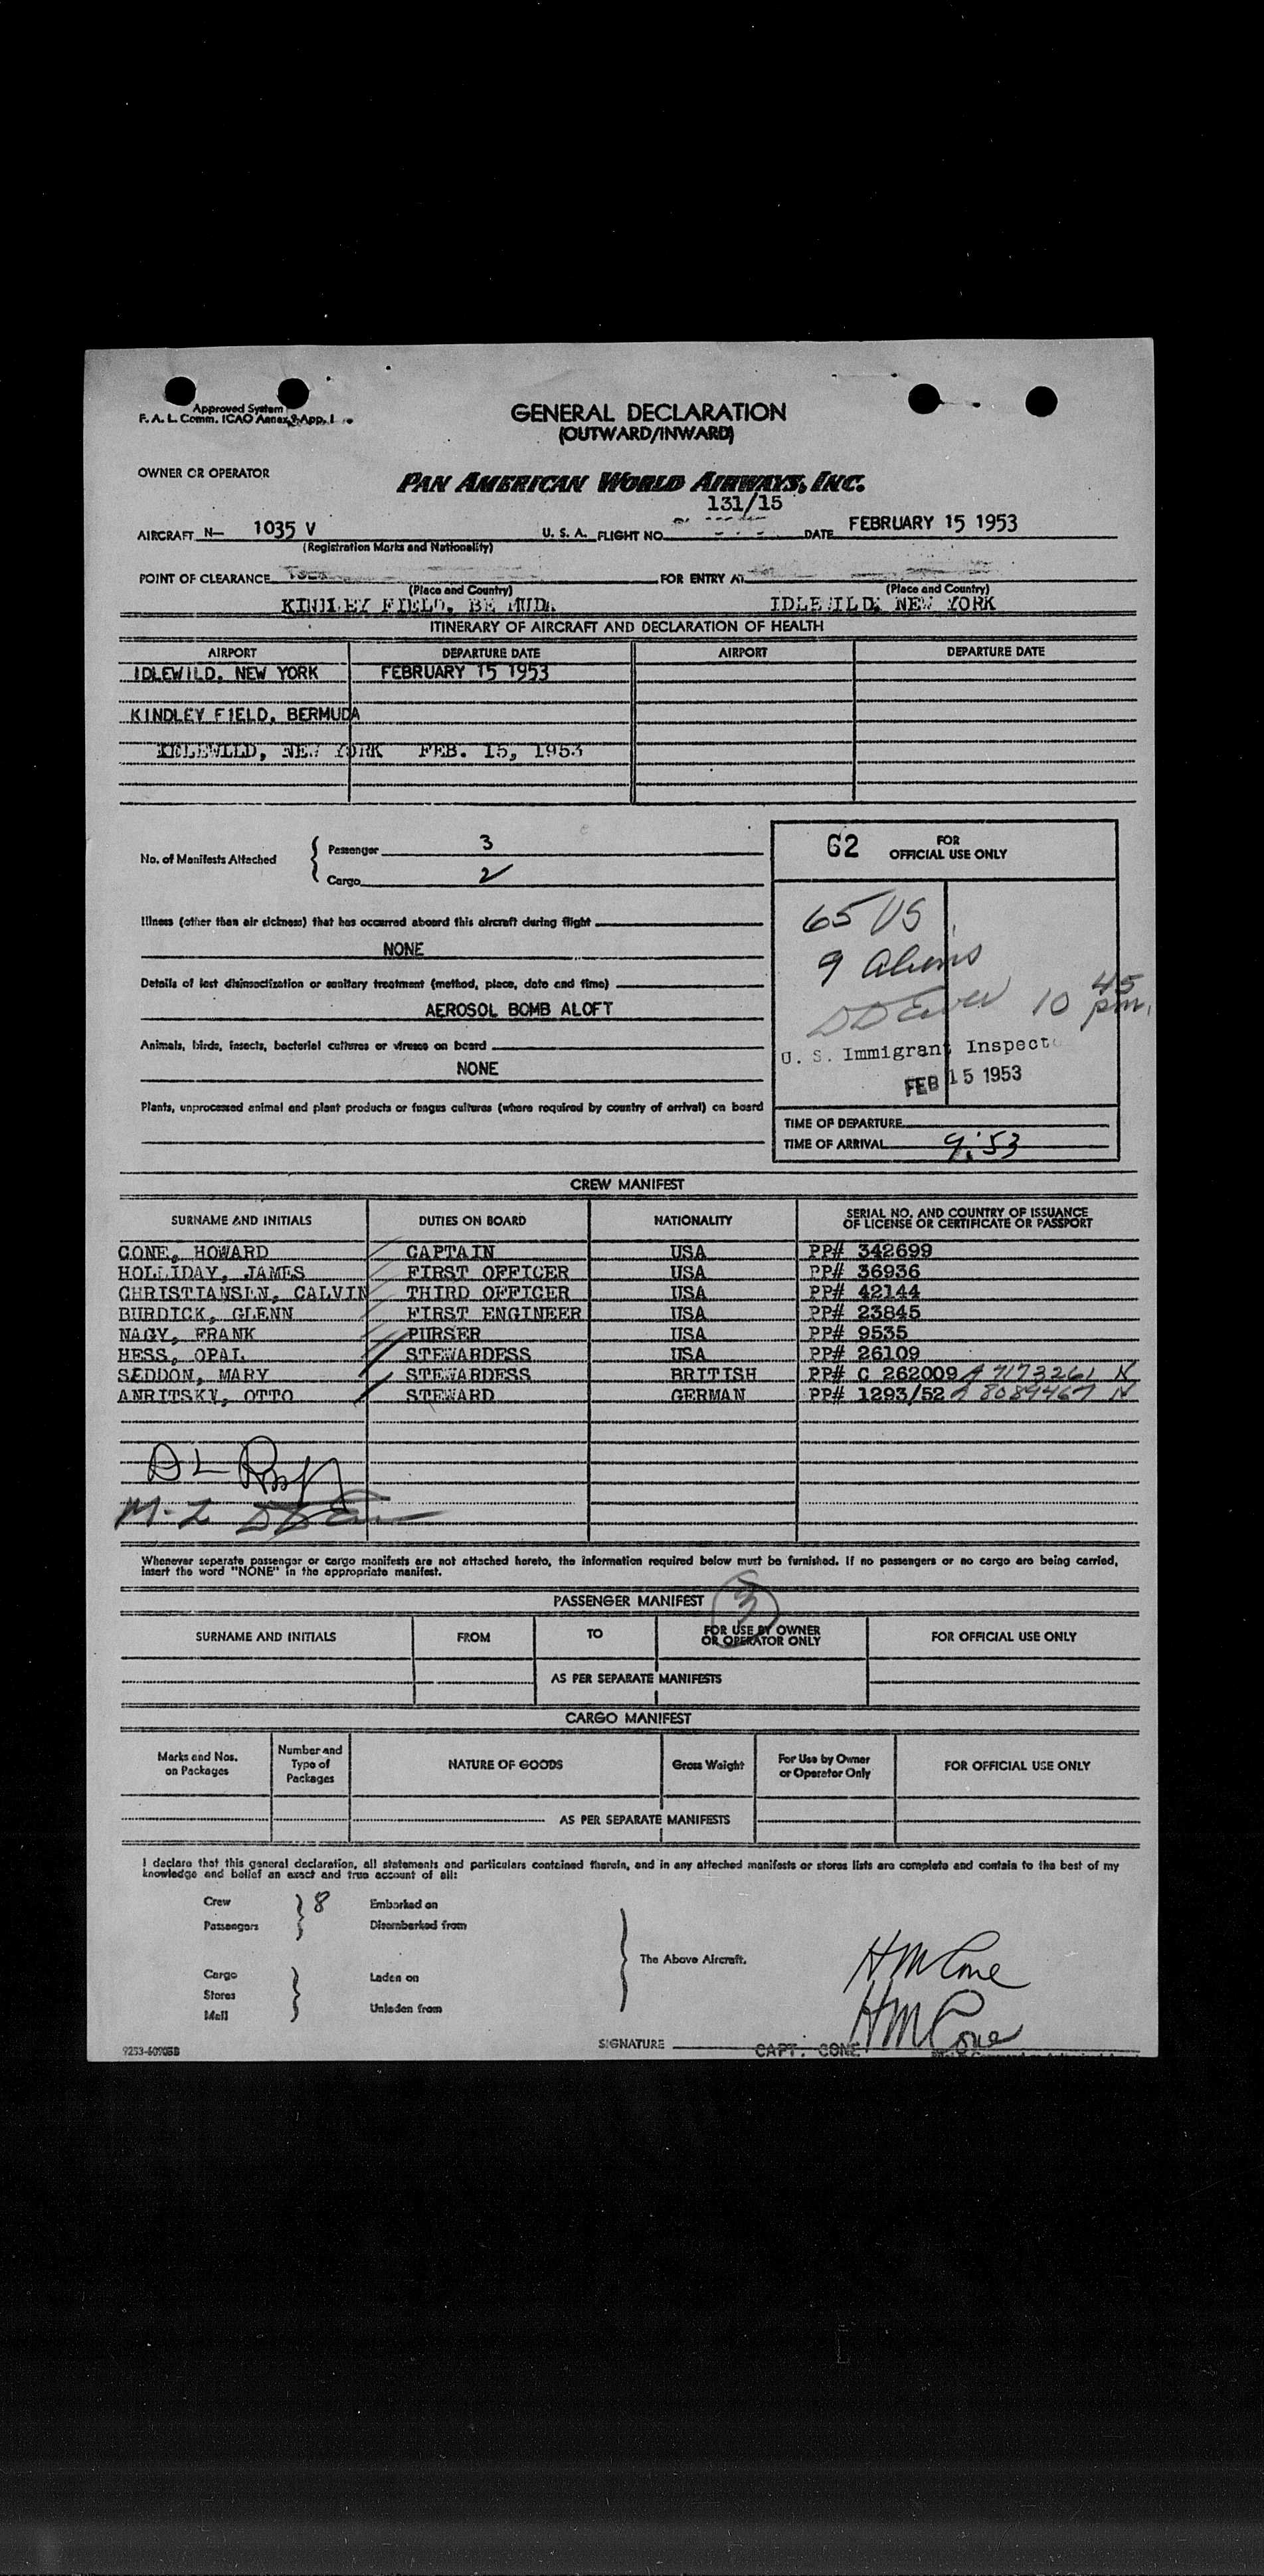 Approved System
F. A. L. Comm. ICAO Annex 9, App. 1
GENERAL DECLARATION
(OUTWARD/INWARD)
OWNER OR OPERATOR
PAN AMERICAN WORLD AIRWAYS, INC.
131/15
AIRCRAFT N— 1035 V U. S. A. FLIGHT NO. DATE FEBRUARY 15 1953
(Registration Marks and Nationality)
POINT OF CLEARANCE FOR ENTRY AT
(Place and Country) (Place and Country)
KINDLEY FIELD, BE MUDA IDLEWILD, NEW YORK
ITINERARY OF AIRCRAFT AND DECLARATION OF HEALTH
AIRPORT DEPARTURE DATE AIRPORT DEPARTURE DATE
IDLEWILD, NEW YORK FEBRUARY 15 1953
KINDLEY FIELD, BERMUDA
IDLEWILD, NEW YORK FEB. 15, 1953
No. of Manifests Attached
Passenger 3
Cargo 2
62 FOR OFFICIAL USE ONLY
65 US
9 Aliens
10 45 pm.
U. S. Immigrant Inspecto
FEB 15 1953
TIME OF DEPARTURE
TIME OF ARRIVAL 9:53
Illness (other than air sickness) that has occurred aboard this aircraft during flight
NONE
Details of last disinsectization or sanitary treatment (method, place, date and time)
AEROSOL BOMB ALOFT
Animals, birds, insects, bacterial cultures or viruses on board
NONE
Plants, unprocessed animal and plant products or fungus cultures (where required by country of arrival) on board
CREW MANIFEST
SURNAME AND INITIALS DUTIES ON BOARD NATIONALITY SERIAL NO. AND COUNTRY OF ISSUANCE OF LICENSE OR CERTIFICATE OR PASSPORT
CONE, HOWARD CAPTAIN USA PP# 342699
HOLLIDAY, JAMES FIRST OFFICER USA PP# 36936
CHRISTIANSEN, CALVIN THIRD OFFICER USA PP# 42144
BURDICK, GLENN FIRST ENGINEER USA PP# 23845
NAGY, FRANK PURSER USA PP# 9535
HESS, OPAL STEWARDESS USA PP# 26109
SEDDON, MARY STEWARDESS BRITISH PP# C 262009 A 7173261 N
ANRITSKY, OTTO STEWARD GERMAN PP# 1293/52 A 8089467 N
M-2
Whenever separate passenger or cargo manifests are not attached hereto, the information required below must be furnished. If no passengers or no cargo are being carried,
insert the word "NONE" in the appropriate manifest.
PASSENGER MANIFEST 3
SURNAME AND INITIALS FROM TO FOR USE BY OWNER OR OPERATOR ONLY FOR OFFICIAL USE ONLY
AS PER SEPARATE MANIFESTS
CARGO MANIFEST
Marks and Nos. on Packages Number and Type of Packages NATURE OF GOODS Gross Weight For Use by Owner or Operator Only FOR OFFICIAL USE ONLY
AS PER SEPARATE MANIFESTS
I declare that this general declaration, all statements and particulars contained therein, and in any attached manifests or stores lists are complete and contain to the best of my
knowledge and belief an exact and true account of all:
Crew 8 Embarked on
Passengers Disembarked from
The Above Aircraft.
Cargo Laden on
Stores
Mail Unladen from
HM Cone
HM Cone
SIGNATURE CAPT. CONE